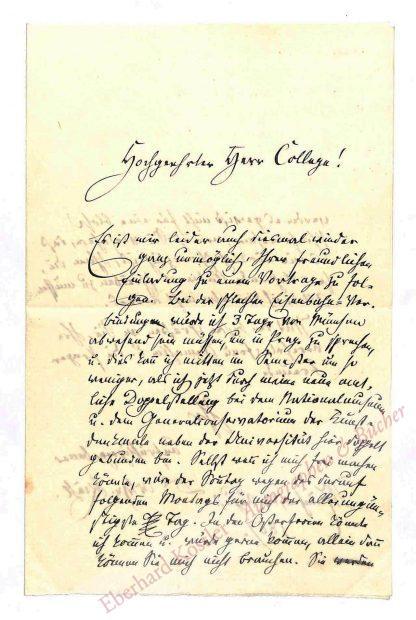 Hochgeehrter Herr College!
Es ist mir leider auch diesmal wieder
ganz unmöglich, Ihrer freundlichen
Einladung zu einem Vortrage zu fol-
gen. Bei der schlechten Eisenbahn-Ver-
bindungen würde ich 3 Tage von München
abwesend sein müssen, um in Prag zu sprechen,
u. dies kann ich mitten im Semester um so
weniger, als ich jetzt durch meine neue amt-
liche Doppelstellung bei dem Nationalmuseum
u. dem Generalconservatorium der Kunst-
denkmale neben der Universität hier doppelt
gebunden bin. Selbst wenn ich mich frei machen
könnte, wäre der Sonntag wegen des darauf
folgenden Montags für mich der allerungün-
stigste Tag. In den Osterferien könnte
ich kommen u. würde gerne kommen, allein dann
können Sie mich nicht brauchen. Sie werden
Eberhard Köstler Autographen & Bücher